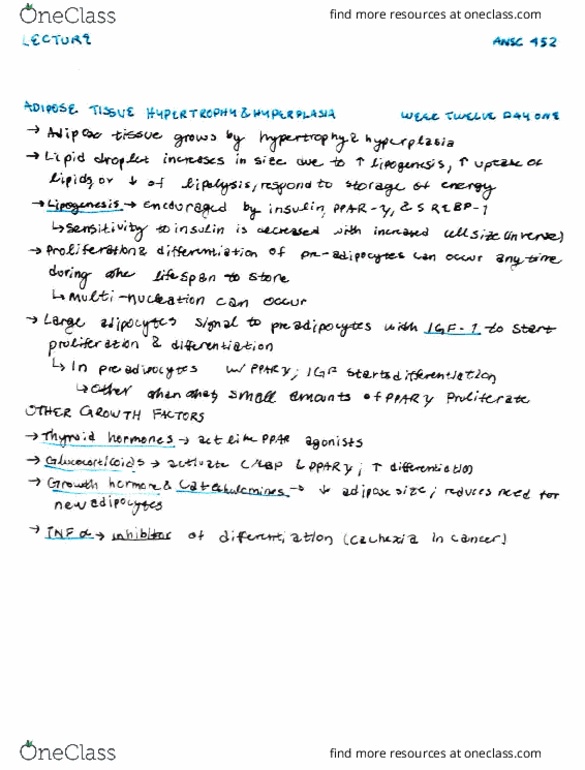 OneClass
find more resources at oneclass.com
LECTURE
ANSC 452
ADIPOSE TISSUE HYPERTROPHY & HYPERPLASIA
WEEK TWELVE DAY ONE
→ Adipose tissue grows by hypertrophy & hyperplasia
→ Lipid droplet increases in size due to ↑ lipogenesis, ↑ uptake of
lipids, or ↓ of lipolysis, respond to storage of energy
→ Lipogenesis → encouraged by insulin, PPAR-γ, & SREBP-1
↳ Sensitivity to insulin is decreased with increased cell size (inverse)
→ Proliferation & differentiation of pre-adipocytes can occur any time
during the lifespan to store
↳ Multi-nucleation can occur
→ Large adipocytes signal to preadipocytes with IGF-1 to start
proliferation & differentiation
↳ In preadipocytes w/ PPARγ; IGF starts differentiation
↳ Other than that, small amounts of PPARγ proliferate
OTHER GROWTH FACTORS
→ Thyroid hormones → act like PPAR agonists
→ Glucocorticoids → activate C/EBP & PPARγ; ↑ differentiation
→ Growth hormone & Catecholamines → ↓ adipose size; reduces need for
new adipocytes
→ TNFα → inhibitor of differentiation (cachexia in cancer)
OneClass
find more resources at oneclass.com